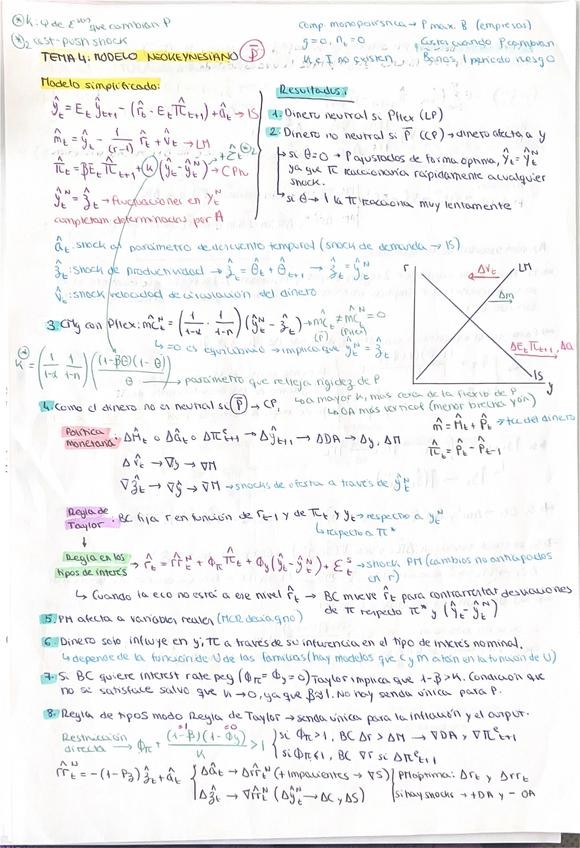 (*) k: φ de Emps que cambian P
*2 cost-push shock
Comp. monopolística → P max B (empresas)
g=0, n_t=0
K e I no existen
Costes cuando P cambian
Bonos, 1 período riesgo
TEMA 4. MODELO NEOKEYNESIANO (P̄)
Modelo simplificado:
ŷ_t = E_t ŷ_{t+1} - (r̂_t - E_t π̂_{t+1}) + â_t → IS
m̂_t = ŷ_t - 1/(r-1) r̂_t + v̂_t → LM
π̂_t = βE_t π̂_{t+1} + k (ŷ_t - ŷ_t^N) + ẑ_t *2 → CPh
ŷ_t^N = ẑ_t → fluctuaciones en Y_t^N
completam determinadas por A
Resultados:
1. Dinero neutral si Pflex (LP)
2. Dinero no neutral si P̄ (CP) → dinero afecta a y
↳ si θ=0 → P ajustados de forma óptima, ŷ_t = ŷ_t^N
ya que π reaccionaría rápidamente a cualquier
shock.
↳ si θ→1 la π reacciona muy lentamente
â_t: shock al parámetro de descuento temporal (shock de demanda → IS)
ẑ_t: shock de productividad →
v̂_t: shock velocidad de circulación del dinero
3. CMg con Pflex: m̂c_t^N = (1/1-α · 1/1-n) (ŷ_t^N - ẑ_t) → m̂c_t^N = 0
↳ =0 es equilibrio → implica que ŷ_t^N = ẑ_t
(*) k = (1/1-α · 1/1-n) ((1-βθ)(1-θ)/θ) → parámetro que refleja rigidez de P
r
LM
Δv̂_t
Δm
ΔE_t π̂_{t+1}, Δa
IS
y
↳ a mayor k, mas cerca de la flexib de P
↳ OA más vertical (menor brecha y/n)
4. Como el dinero no es neutral si (P̄) → CP,
m̂ = M̂_t + P̂_t →
π̂_t = P̂_t - P̂_{t-1}
Política monetaria: ΔM̂_t o Δâ_t o Δπ̂^e_{t+1} → Δŷ_{t+1} → ΔDA → Δy, Δπ
Δv̂_t → ∇y → ∇π
∇ẑ_t → ∇ŷ → ∇π → shocks de oferta a través de ŷ_t^N
Regla de Taylor: BC fija r en función de r_{t-1} y de π_t y y_t → respecto a y_t^N
↳ respecto a π*
↓
Regla en los tipos de interés → r̂_t = r̂r_t^N + Φ_π π̂_t + Φ_y (ŷ_t - ŷ_t^N) + ε_t^s → shock PM (cambios no anticipados
en r)
↳ Cuando la eco no está a ese nivel r̂_t → BC mueve r̂_t para contrarrestar desviaciones
de π respecto π* y (ŷ_t - ŷ_t^N)
5. PM afecta a variables reales
6. Dinero solo influye en y, π a través de su influencia en el tipo de interés nominal.
↳ depende de la función de U de las familias (hay modelos que c y m están en la función de U)
7. Si BC quiere interest rate peg (Φ_π = Φ_y = 0) Taylor implica que 1-β > k. Condición que
no se satisface salvo que k→0, ya que β≈1. No hay senda única para P.
8. Regla de tipos modo Regla de Taylor → senda única para la inflación y el output.
Restricción directa → Φ_π + (1-β)(1-Φ_y)/k > 1
=1 =0
si Φ_π>1, BC Δr > Δπ → ∇DA y ∇π^e_{t+1}
si Φ_π<1, BC ∇r si Δπ^e_{t+1}
r̂r_t^N = -(1-P_z) ẑ_t + â_t
Δâ_t → Δr̂r_t^N (+ impacientes → ∇S)
Δẑ_t → ∇r̂r_t^N (Δŷ_t^N → ΔC, ΔS)
PM óptima: Δr_t y Δrr_t
si hay shocks → +DA y -OA